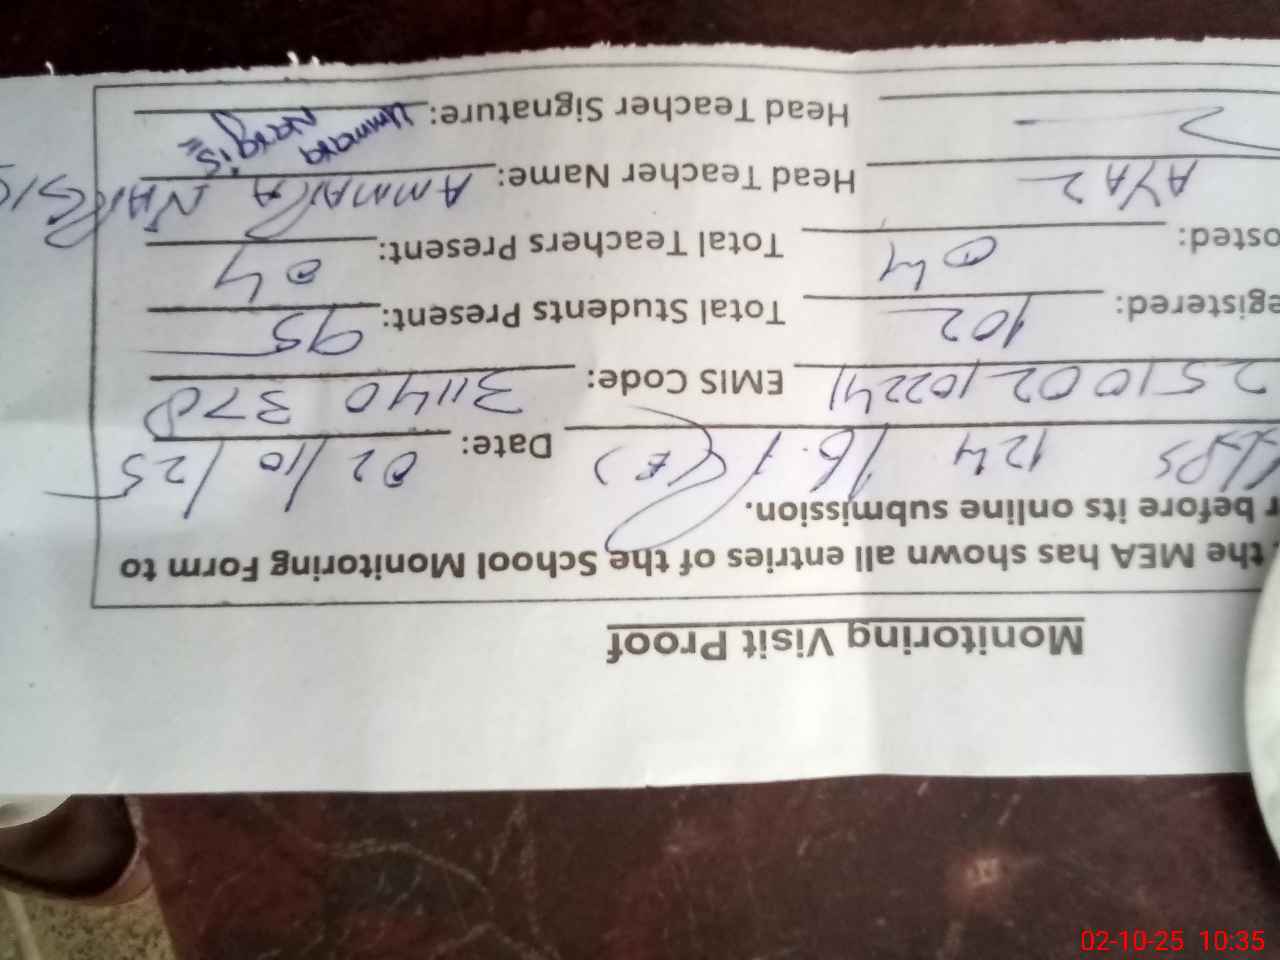 Monitoring Visit Proof
the MEA has shown all entries of the School Monitoring Form to
r before its online submission.
124 16.1 (E) Date: 02/10/25
25100210224 EMIS Code: 31140 378
egistered: 102 Total Students Present: 95
osted: 04 Total Teachers Present: 04
AYAZ Head Teacher Name: AMMARA NARGIS
Head Teacher Signature: Ummara Nargis
02-10-25 10:35